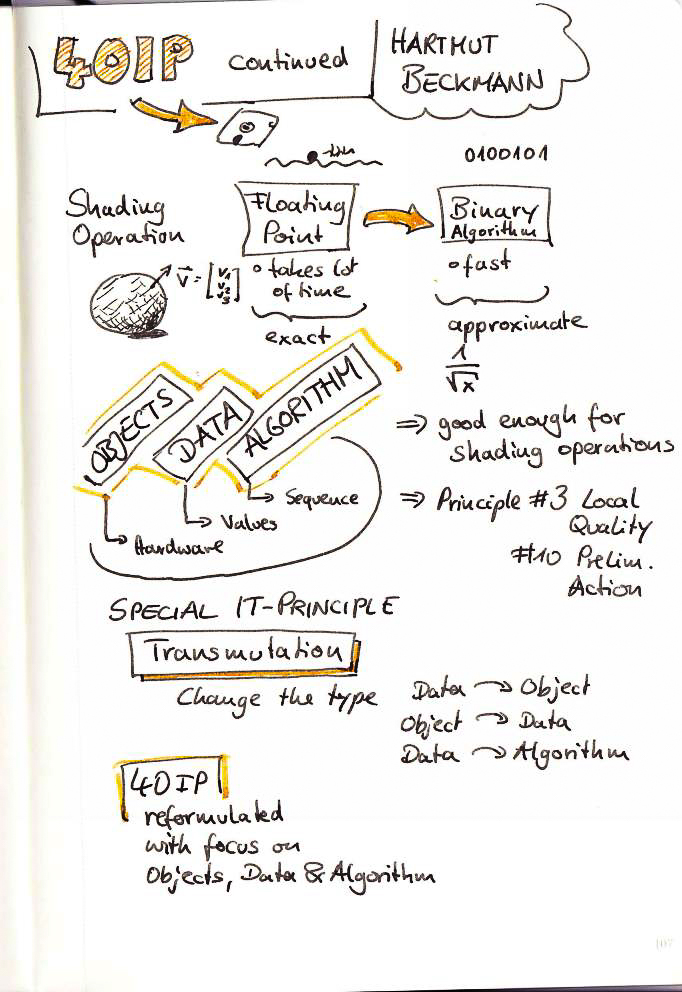 40IP continued
HARTMUT
BECKMANN
0100101
Shading
Operation
V = [V1
V2
V3]
Floating
Point
o takes lot
of time
exact
Binary
Algorithm
o fast
approximate
1
√x
OBJECTS
DATA
ALGORITHM
→ Sequence
→ Values
→ Hardware
⇒ good enough for
shading operations
⇒ Principle #3 Local
Quality
#10 Prelim.
Action
SPECIAL IT-PRINCIPLE
Transmutation
Change the type
Data → Object
Object → Data
Data → Algorithm
40IP
reformulated
with focus on
Objects, Data & Algorithm
107